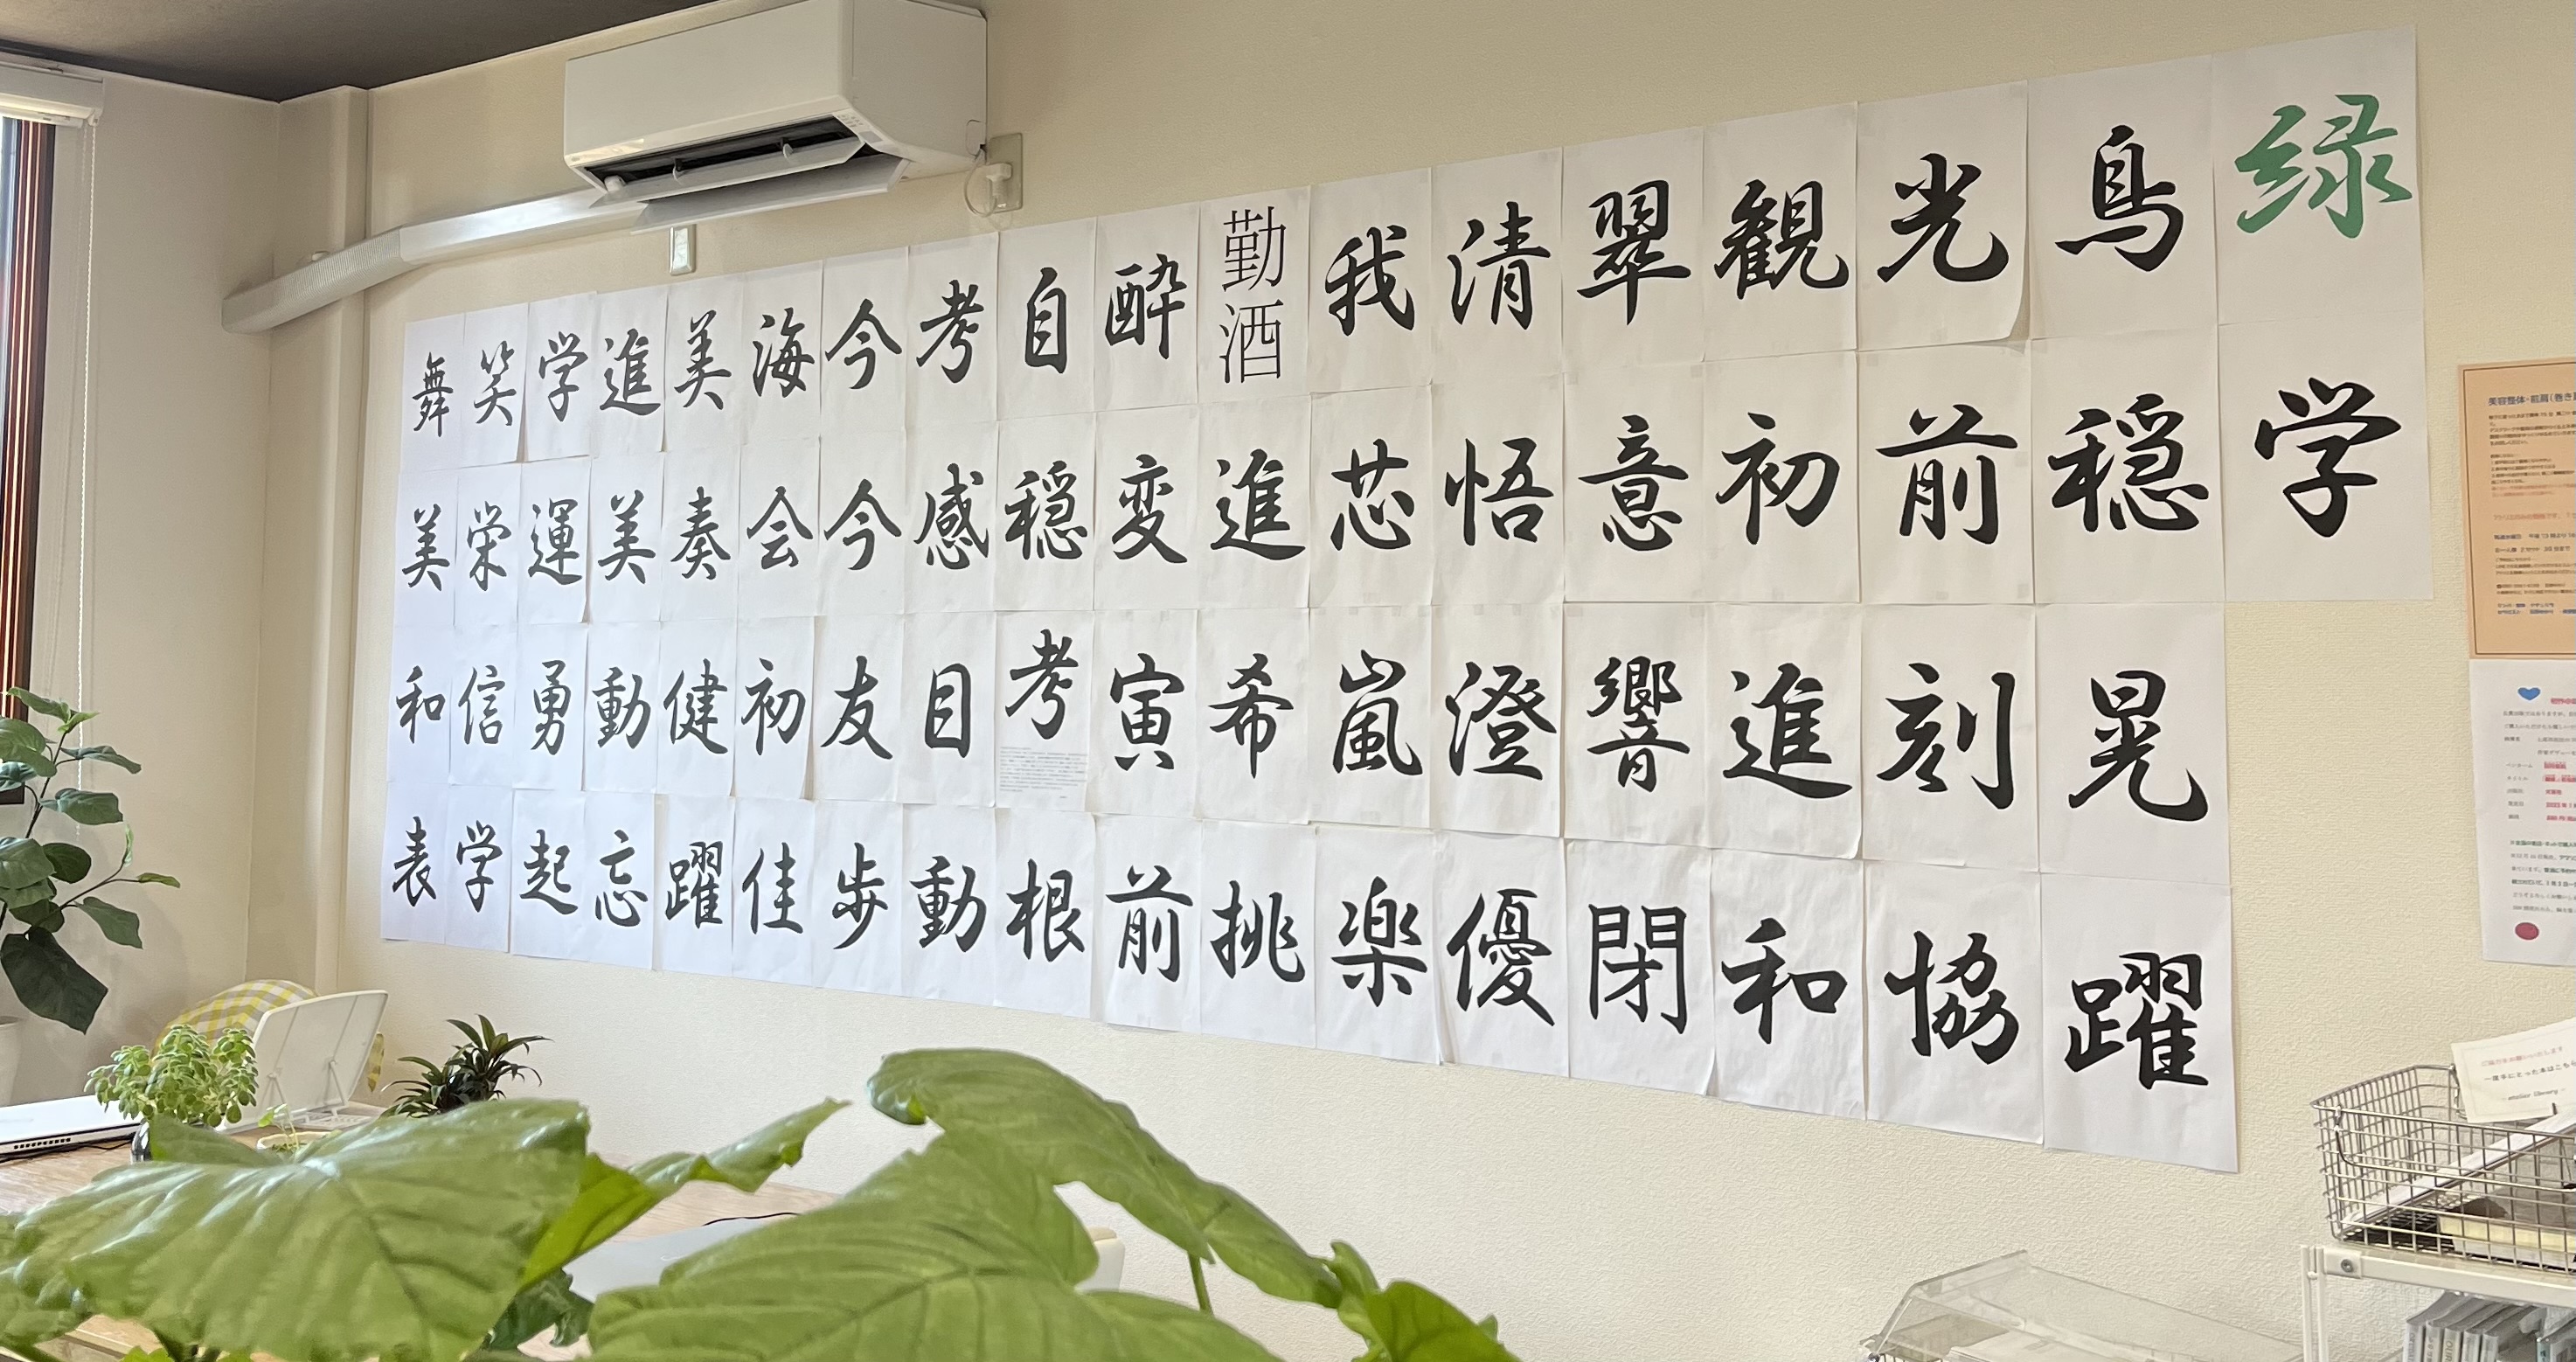 舞 笑 学 進 美 海 今 考 自 酔 勤酒 我 清 翠 観 光 鳥 緑
美 栄 運 美 奏 会 今 感 穏 変 進 芯 悟 意 初 前 穏 学
和 信 勇 動 健 初 友 目 考 寅 希 嵐 澄 響 進 刻 晃
表 学 起 忘 躍 佳 歩 動 根 前 挑 楽 優 閉 和 協 躍
美容整体・前肩(巻き
一度手にとった本はこちら
atelier library